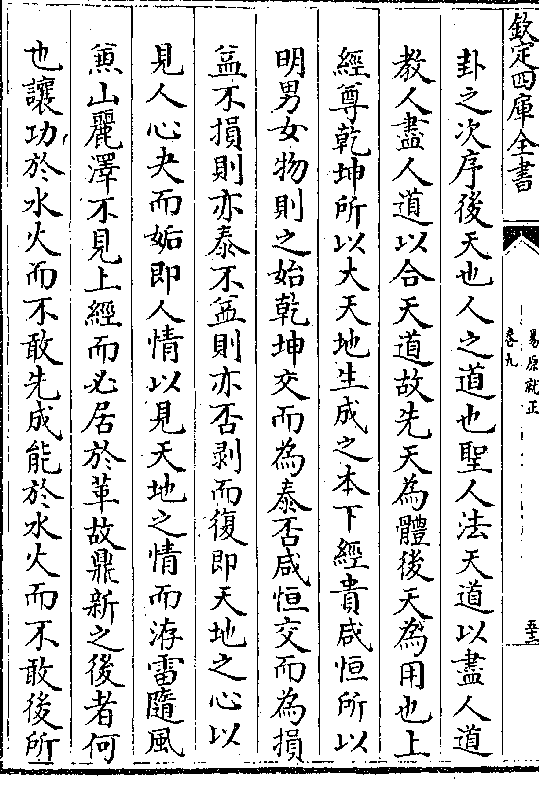 欽定四庫全書
易原就正
卷九
卦之次序後天也人之道也聖人法天道以盡人道
教人盡人道以合天道故先天為體後天為用也上
經尊乾坤所以大天地生成之本下經貴咸恒所以
明男女物則之始乾坤交而為泰否咸恒交而為損
益不損則亦泰不益則亦否剥而復即天地之心以
見人心夬而姤即人情以見天地之情而洊雷隨風
兼山麗澤不見上經而必居於革故鼎新之後者何
也讓功於水火而不敢先成能於水火而不敢後所